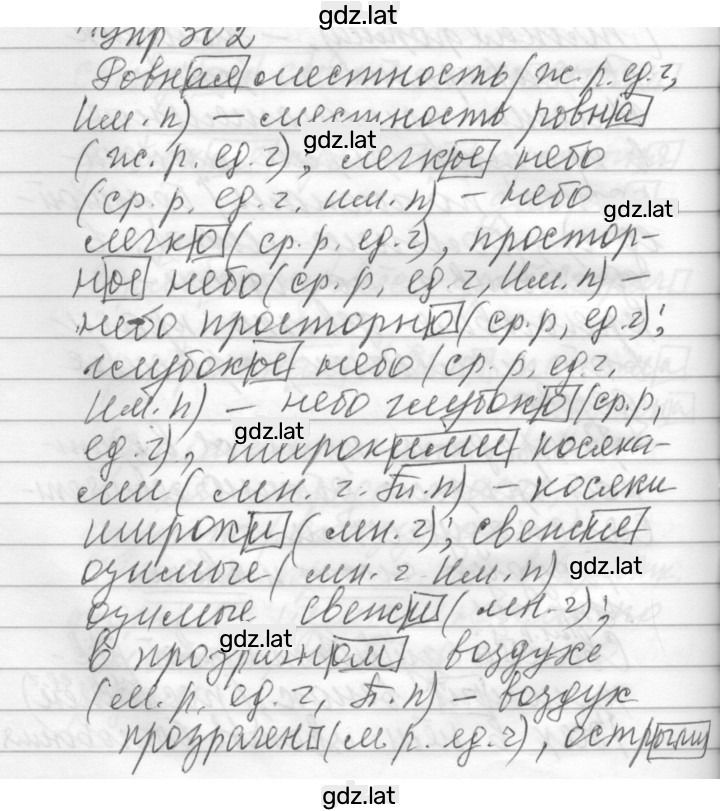 gdz.lat
Упр 302
Ровная местность (ж. р. ед. ч,
Им. п) – местность ровна
gdz.lat
(ж. р. ед. ч), легкое небо
(ср. р, ед. ч, им. п) – небо
gdz.lat
легко (ср. р, ед. ч), простор-
ное небо (ср. р, ед. ч, Им. п) –
небо просторно (ср. р, ед. ч);
глубокое небо (ср. р, ед. ч,
Им. п) – небо глубоко (ср. р,
gdz.lat
ед. ч), широкими косяка-
ми (мн. ч. Тп. п) – косяки
широки (мн. ч); свежие
озимые (мн. ч Им. п)
gdz.lat
озимые свежи (мн. ч);
gdz.lat
в прозрачном воздухе
(м. р, ед. ч, П. п) – воздух
прозрачен (м. р. ед. ч), острыми
gdz.lat